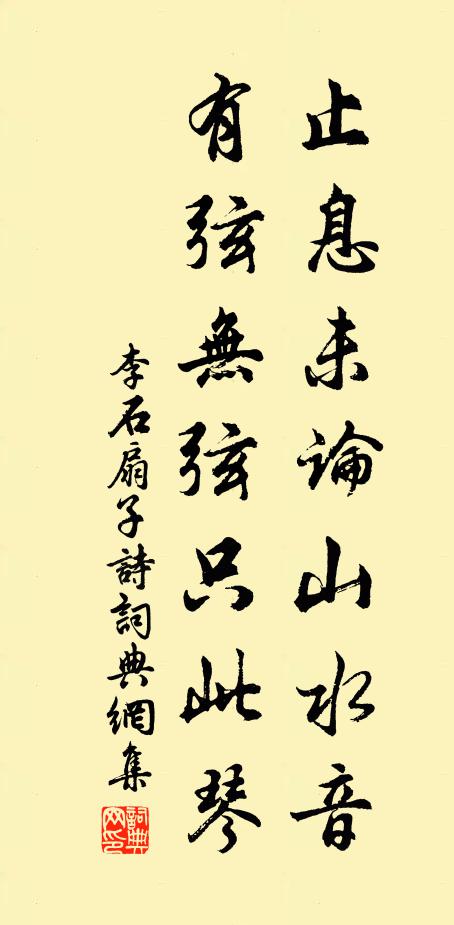 止息未論山水音
有弦無弦只此琴
李石扇子詩詞典網集
詞典
网印